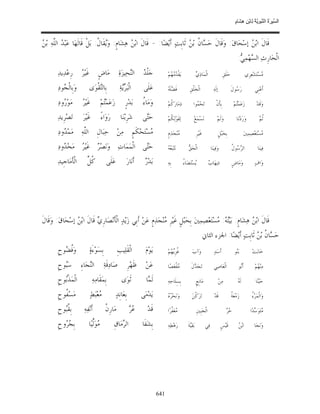 السِّيرَةُ النَّبَوِيَّةُ لِابْنِ هِشَامٍ
قَالَ ابْنُ إسْحَاقَ وَقَالَ حَسَّانُ بْنُ ثَابِتٍ أَيْضًا - قَالَ ابْنُ هِشَامٍ وَيُقَالُ بَلْ قَالَهَا عَبْدُ اللَّهِ بْنُ
الْحَارِثِ السَّهْمِيُّ
مُسْتَشْعِرِي حَلَقِ الْمَاذِيِّ يَقْدُمُهُمْ جَلْدُ النَّحِيزَةِ مَاضٍ غَيْرُ رِعْدِيدِ
أَعْنِي رَسُولَ إلَهِ الْخَلْقِ فَضَّلَهُ عَلَى الْبَرِيَّةِ بِالتَّقْوَى وَبِالْجُودِ
وَقَدْ زَعَمْتُمْ بِأَنْ تَحْمُوا ذِمَارَكُمْ وَمَاءُ بَدْرٍ زَعَمْتُمْ غَيْرُ مَوْرُودِ
ثُمَّ وَرَدْنَا وَلَمْ نَسْمَعْ لِقَوْلِكُمْ حَتَّى شَرِبْنَا رَوَاءً غَيْرَ تَصْرِيدِ
مُسْتَعْصِمِينَ بِحَبْلٍ غَيْرِ مُنْجَذِمٍ مُسْتَحْكَمٍ مِنْ حِبَالِ اللَّهِ مَمْدُودِ
فِينَا الرَّسُولُ وَفِينَا الْحَقُّ نَتْبَعُهُ حَتَّى الْمَمَاتِ وَنَصْرٌ غَيْرُ مَحْدُودِ
وَافٍ وَمَاضٍ شِهَابٌ يُسْتَضَاءُ بِهِ بَدْرٌ أَنَارَ عَلَى كُلِّ الْأَمَاجِيدِ
قَالَ ابْنُ هِشَامٍ بَيْتُهُ مُسْتَعْصِمِينَ بِحَبْلٍ غَيْرِ مُنْجَذِمٍ عَنْ أَبِي زَيْدٍ الْأَنْصَارِيِّ قَالَ ابْنُ إسْحَاقَ وَقَالَ
حَسَّانُ بْنُ ثَابِتٍ أَيْضًا الجزء الثاني
خَابَتْ بَنُو أَسَدٍ وَآبَ غَزِيُّهُمْ يَوْمَ الْقَلِيبِ بِسَوْءَةٍ وَفُضُوحِ
مِنْهُمْ أَبُو الْعَاصِي تَجَدَّلَ مُقْعَصًا عَنْ ظَهْرِ صَادِقَةِ النَّجَاءِ سَبُوحِ
حَيْنًا لَهُ مِنْ مَانِعٍ بِسِلَاحِهِ لَمَّا ثَوَى بِمَقَامِهِ الْمَذْبُوحِ
وَالْمَرْءُ زَمْعَةُ قَدْ تَرَكْنَ وَنَحْرُهُ يَدْمَى بِعَانِدِ مُعْبَطٍ مَسْفُوحِ
مُتَوَسِّدًا حُرَّ الْجَبِينِ مُعَفَّرًا قَدْ عُرَّ مَارِنُ أَنْفِهِ بِقُبُوحِ
وَنَجَا ابْنُ قَيْسٍ فِي بَقِيَّةِ رَهْطِهِ بِشَفَا الرَّمَاقِ مُوَلِّيًا بِجُرُوحِ
641